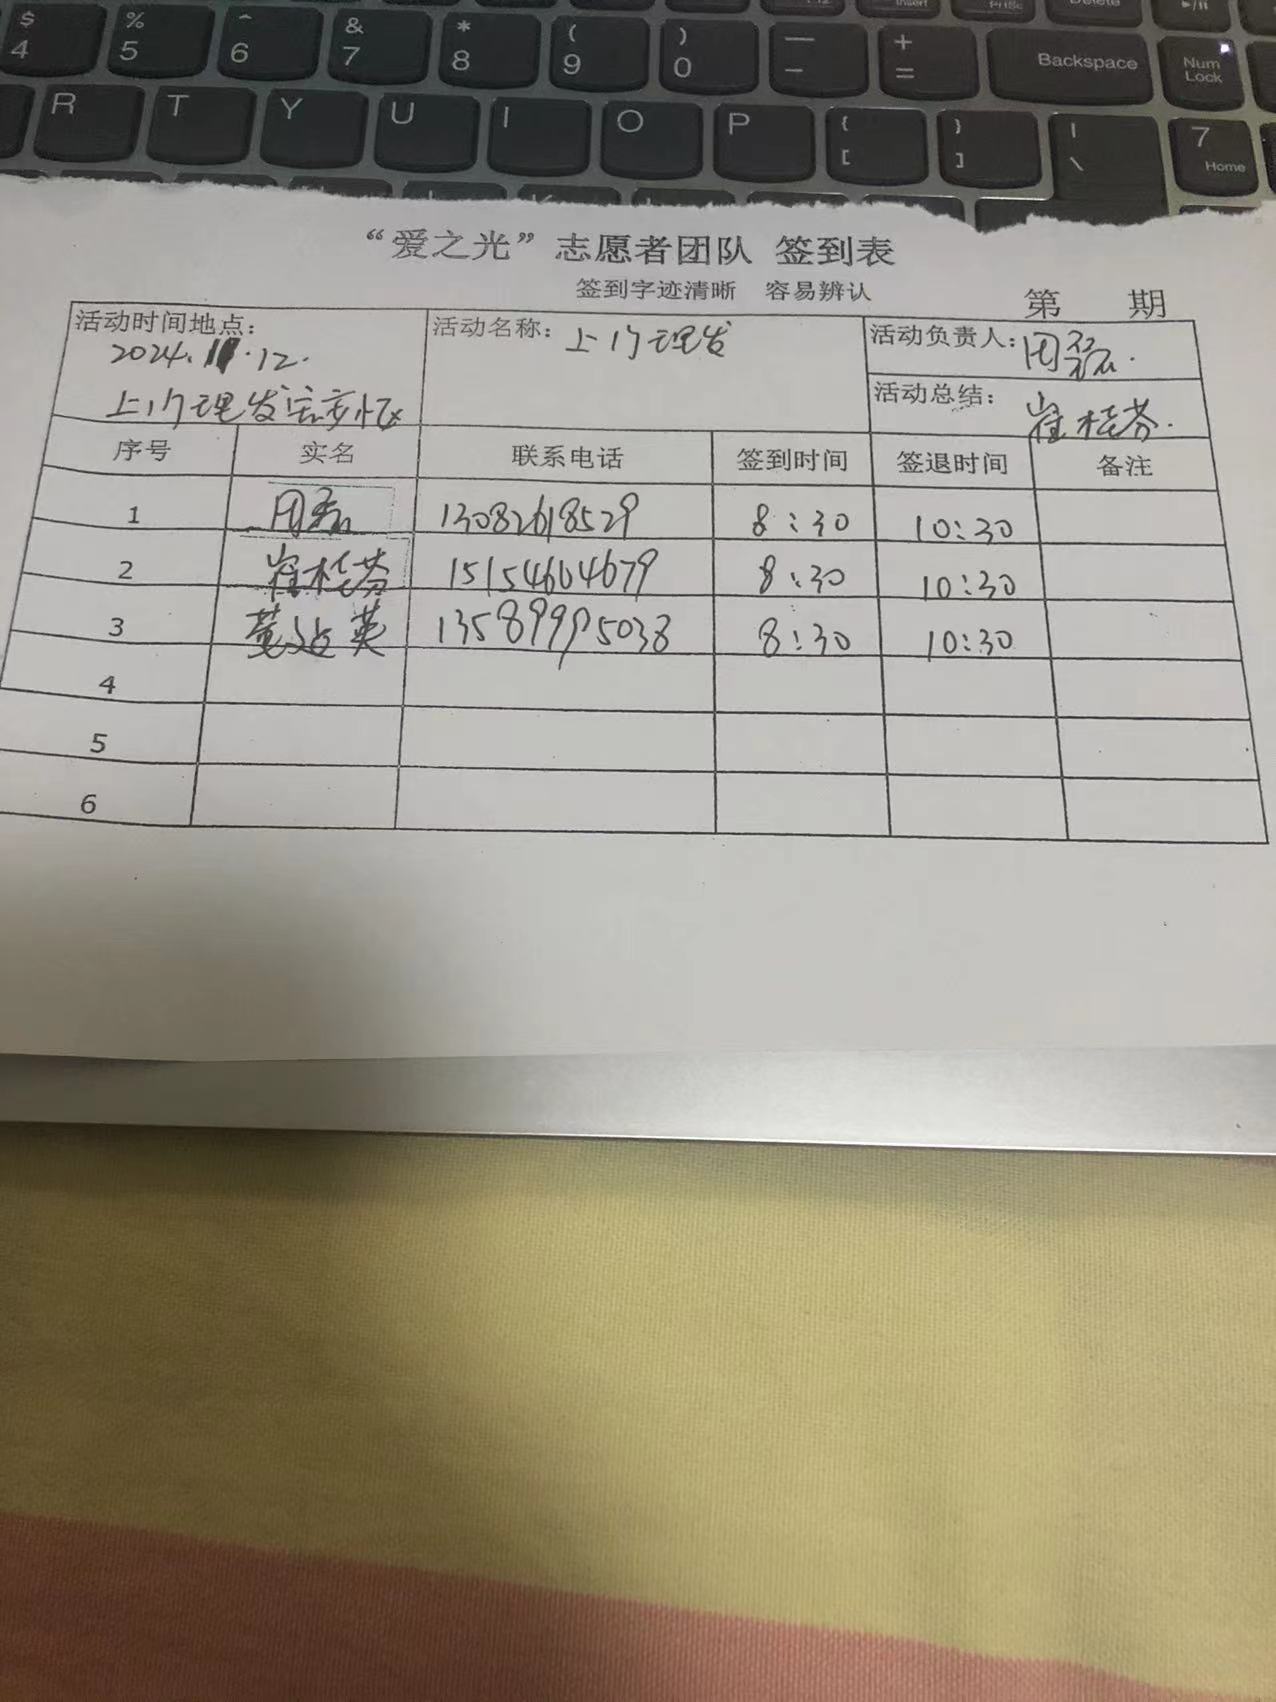 $ % ^ & * ( ) — + Backspace Num Lock
4 5 6 7 8 9 0 - =
R T Y U I O P { [ } ] | \ 7 Home
“爱之光”志愿者团队 签到表
签到字迹清晰 容易辨认
第 期
活动时间地点: 活动名称: 上门理发 活动负责人: 周磊.
2024.11.12.
上门理发 活动总结: 崔桂芬.
序号 实名 联系电话 签到时间 签退时间 备注
1 周磊 13082618529 8:30 10:30
2 崔桂芬 15154604679 8:30 10:30
3 英 13589995038 8:30 10:30
4
5
6